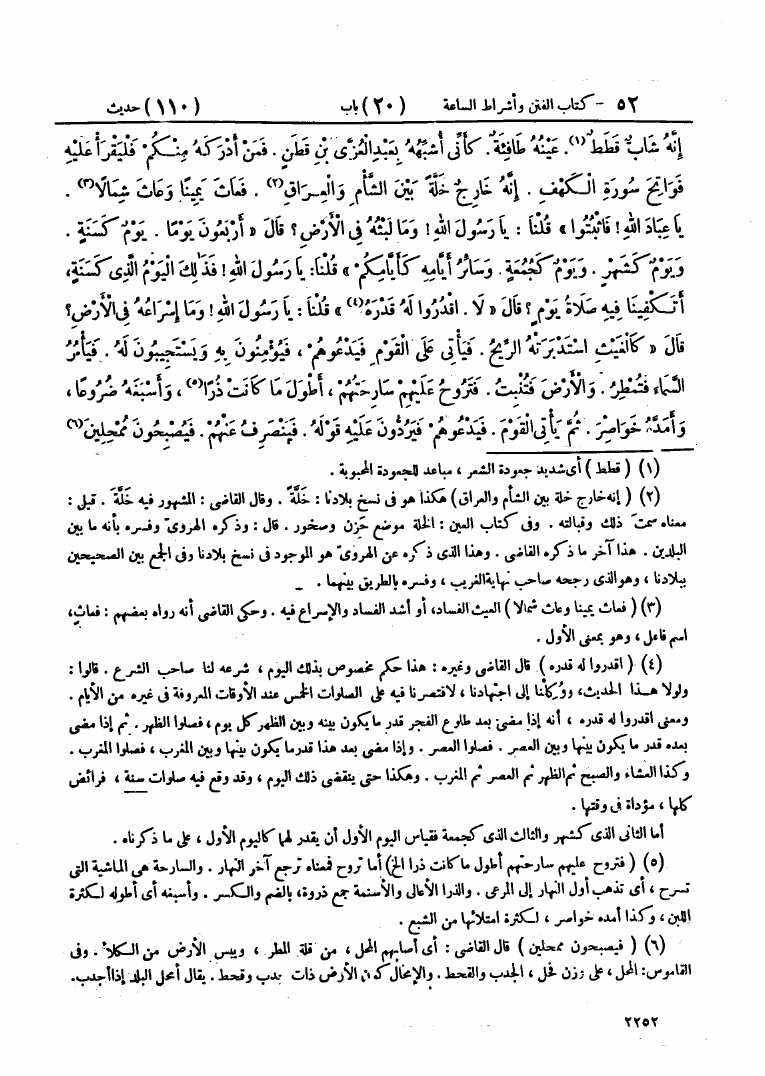 ٥٢ - كتاب الفتن وأشراط الساعة (٢٠) باب (١١٠) حديث
إِنَّهُ شَابٌّ قَطَطٌ(١). عَيْنُهُ طَافِئَةٌ. كَأَنِّى أُشَبِّهُهُ بِعَبْدِ الْعُزَّى بْنِ قَطَنٍ. فَمَنْ أَدْرَكَهُ مِنْكُمْ فَلْيَقْرَأْ عَلَيْهِ
فَوَاتِحَ سُورَةِ الْكَهْفِ. إِنَّهُ خَارِجٌ خَلَّةً بَيْنَ الشَّأْمِ وَالْعِرَاقِ(٢). فَعَاثَ يَمِينًا وَعَاثَ شِمَالًا(٣).
يَا عِبَادَ اللهِ! فَاثْبُتُوا» قُلْنَا: يَا رَسُولَ اللهِ! وَمَا لَبْثُهُ فِى الْأَرْضِ؟ قَالَ «أَرْبَعُونَ يَوْمًا. يَوْمٌ كَسَنَةٍ.
وَيَوْمٌ كَشَهْرٍ. وَيَوْمٌ كَجُمُعَةٍ. وَسَائِرُ أَيَّامِهِ كَأَيَّامِكُمْ» قُلْنَا: يَا رَسُولَ اللهِ! فَذٰلِكَ الْيَوْمُ الَّذِى كَسَنَةٍ،
أَتَكْفِينَا فِيهِ صَلَاةُ يَوْمٍ؟ قَالَ «لَا. اقْدُرُوا لَهُ قَدْرَهُ(٤)» قُلْنَا: يَا رَسُولَ اللهِ! وَمَا إِسْرَاعُهُ فِى الْأَرْضِ؟
قَالَ «كَالْغَيْثِ اسْتَدْبَرَتْهُ الرِّيحُ. فَيَأْتِى عَلَى الْقَوْمِ فَيَدْعُوهُمْ، فَيُؤْمِنُونَ بِهِ وَيَسْتَجِيبُونَ لَهُ. فَيَأْمُرُ
السَّمَاءَ فَتُمْطِرُ. وَالْأَرْضَ فَتُنْبِتُ. فَتَرُوحُ عَلَيْهِمْ سَارِحَتُهُمْ، أَطْوَلَ مَا كَانَتْ ذُرًا(٥)، وَأَسْبَغَهُ ضُرُوعًا،
وَأَمَدَّهُ خَوَاصِرَ. ثُمَّ يَأْتِى الْقَوْمَ. فَيَدْعُوهُمْ فَيَرُدُّونَ عَلَيْهِ قَوْلَهُ. فَيَنْصَرِفُ عَنْهُمْ. فَيُصْبِحُونَ مُمْحِلِينَ(٦)
(١) (قطط) أى شديد جعودة الشعر، مباعد للجعودة المحبوبة.
(٢) (إنه خارج خلة بين الشأم والعراق) هكذا هو فى نسخ بلادنا: خَلَّةً. وقال القاضى: المشهور فيه خَلَّةَ. قيل:
معناه سمتَ ذلك وقبالته. وفى كتاب العين: الخلة موضع حَزِن وصخور. قال: وذكره الهروىّ وفسره بأنه ما بين
البلدين. هذا آخر ما ذكره القاضى. وهذا الذى ذكره عن الهروىّ هو الموجود فى نسخ بلادنا وفى الجمع بين الصحيحين
ببلادنا، وهو الذى رجحه صاحب نهاية الغريب، وفسره بالطريق بينهما.
(٣) (فعاث يمينا وعاث شمالا) العيث الفساد، أو أشد الفساد والإسراع فيه. وحكى القاضى أنه رواه بعضهم: فعاثٍ،
اسم فاعل، وهو بمعنى الأول.
(٤) (اقدروا له قدره) قال القاضى وغيره: هذا حكم مخصوص بذلك اليوم، شرعه لنا صاحب الشرع. قالوا:
ولولا هذا الحديث، ووُكِلْنا إلى اجتهادنا، لاقتصرنا فيه على الصلوات الخمس عند الأوقات المعروفة فى غيره من الأيام.
ومعنى اقدروا له قدره، أنه إذا مضى بعد طلوع الفجر قدر ما يكون بينه وبين الظهر كل يوم، فصلوا الظهر. ثم إذا مضى
بعده قدر ما يكون بينها وبين العصر. فصلوا العصر. وإذا مضى بعد هذا قدر ما يكون بينها وبين المغرب، فصلوا المغرب.
وكذا العشاء والصبح ثم الظهر ثم العصر ثم المغرب. وهكذا حتى ينقضى ذلك اليوم، وقد وقع فيه صلوات سنة، فرائض
كلها، مؤداة فى وقتها.
أما الثانى الذى كشهر والثالث الذى كجمعة فقياس اليوم الأول أن يقدر لهما كاليوم الأول، على ما ذكرناه.
(٥) (فتروح عليهم سارحتهم أطول ما كانت ذرا الخ) أما تروح فمعناه ترجع آخر النهار. والسارحة هى الماشية التى
تسرح، أى تذهب أول النهار إلى المرعى. والذرا الأعالى والأسنمة جمع ذروة، بالضم والكسر. وأسبغه أى أطوله لكثرة
اللبن، وكذا أمده خواصر، لكثرة امتلائها من الشبع.
(٦) (فيصبحون ممحلين) قال القاضى: أى أصابهم المحل، من قلة المطر، ويبس الأرض من الكلأ. وفى
القاموس: المحل، على وزن فحل، الجدب والقحط. والإمحال كون الأرض ذات جدب وقحط. يقال أمحل البلد إذا أجدب.
٢٢٥٢